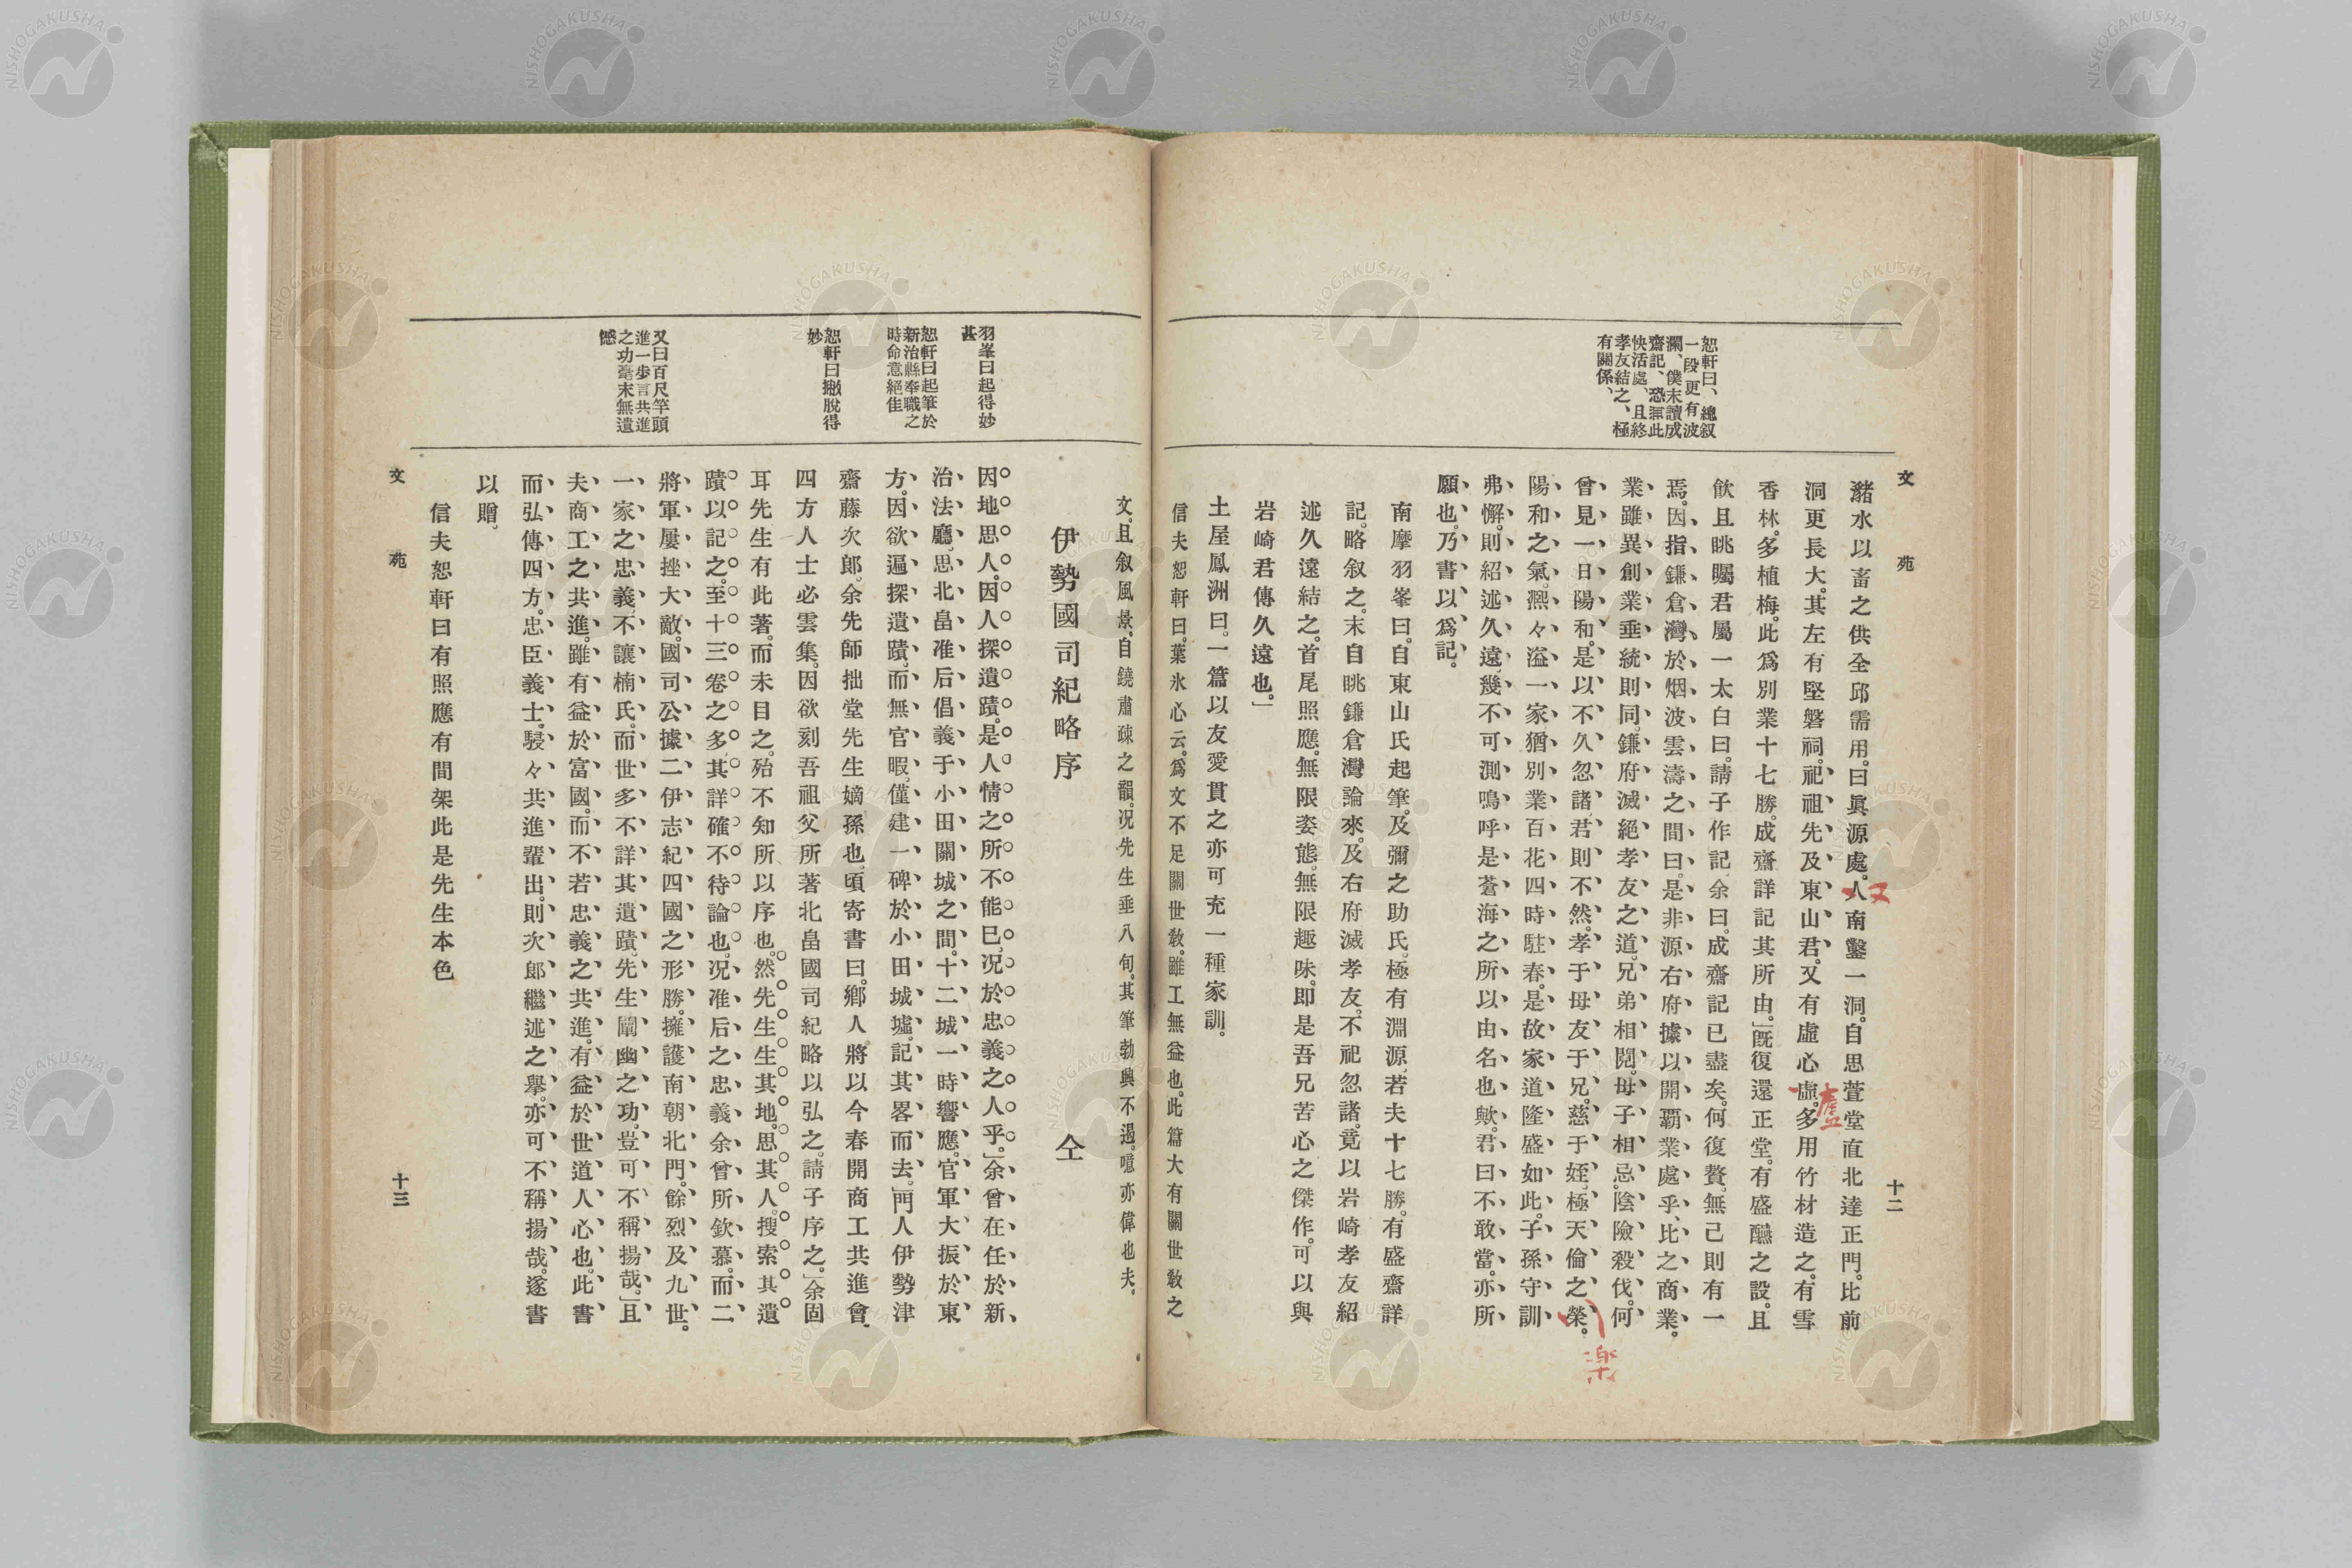 文苑
十二
恕軒曰、總叙
一段更有波
瀾、僕未讀成
齋記、恐無此
快活處、且終
孝友結之、極
有關係、
瀦水以畜之供全邱需用。曰眞源處。人南鑿一洞。自思萱堂直北達正門。比前
又
洞更長大。其左有堅磐祠。祀祖先及東山君。又有虛心虛。多用竹材造之。有雪
廬
香林。多植梅。此爲別業十七勝。成齋詳記其所由。」既復還正堂。有盛醼之設。且
飮且眺矚君屬一太白曰。請子作記。余曰。成齋記已盡矣。何復贅。無已則有一
焉。因指鎌倉灣於烟波雲濤之間曰。是非源右府據以開覇業處乎、比之商業。
業雖異創業垂統則同。鎌府滅絕孝友之道。兄弟相鬩。母子相忌。陰險殺伐。何
曾見一日陽和。是以不久忽諸。君則不然。孝于母友于兄。慈于姪。極天倫之榮。
樂
陽和之氣。凞々溢一家。猶別業百花四時駐春。是故家道隆盛如此。子孫守訓
弗懈。則紹述久遠。幾不可測。鳴呼是蒼海之所以由名也歟。君曰不敢當。亦所
願也。乃書以爲記。
南摩羽峯曰。自東山氏起筆。及彌之助氏。極有淵源。若夫十七勝。有盛齋詳
記。略叙之。末自眺鎌倉灣論來。及右府滅孝友。不祀忽諸。竟以岩崎孝友紹
述久遠結之。首尾照應。無限姿態。無限趣味。即是吾兄苦心之傑作。可以與
岩崎君傳久遠也。」
土屋鳳洲曰。一篇以友愛貫之亦可充一種家訓。
信夫恕軒曰。葉水心云。爲文不足關世敎。雖工無益也。此篇大有關世敎之
文。且叙風景。自鐃肅疎之韻。况先生垂八旬。其筆勃興不遏。噫亦偉也夫。
羽峯曰起得妙
甚
恕軒曰起筆於
新治縣奉職之
時命意絕佳
恕軒曰撇脫得
妙
又曰百尺竿頭
進一步言共進
之功毫末無遺
憾
伊勢國司紀略序　仝
因地思人。因人探遺蹟。是人情之所不能已。况於忠義之人乎。」余曾在任於新
治法廳。思北畠准后倡義于小田關城之間。十二城一時響應。官軍大振於東
方。因欲遍探遺蹟。而無官暇。僅建一碑於小田城墟。記其畧而去。」門人伊勢津
齋藤次郎。余先師拙堂先生嫡孫也。頃寄書曰。鄕人將以今春開商工共進會。
四方人士必雲集。因欲刻吾祖父所著北畠國司紀略以弘之。請子序之。」余固
耳先生有此著。而未目之。殆不知所以序也。然先生生其地。思其人。搜索其遺
蹟。以記之。至十三卷之多。其詳確不待論也。况准后之忠義余曾所欽慕。而二
將軍屢挫大敵。國司公據二伊志紀四國之形勝。擁護南朝北門。餘烈及九世。
一家之忠義。不讓楠氏。而世多不詳其遺蹟。先生闡幽之功。豈可不稱揚哉。」且
夫商工之共進。雖有益於富國。而不若忠義之共進。有益於世道人心也。此書
而弘傳四方。忠臣義士。駸々共進輩出。則次郎繼述之擧。亦可不稱揚哉。遂書
以贈。
信夫恕軒曰有照應有間架此是先生本色
文苑
十三